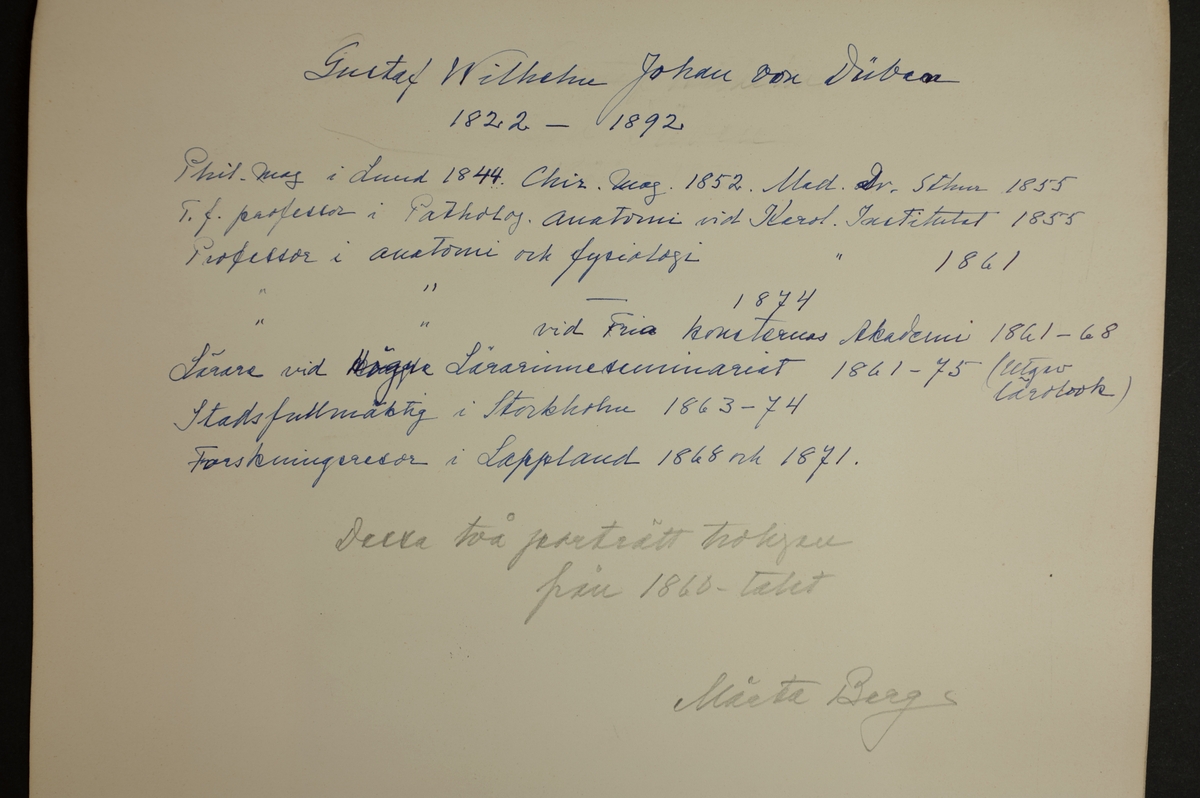 Gustaf Wilhelm Johan von Düben
1822 — 1892
Phil. Mag i Lund 1844. Chir. Mag. 1852. Med. Dr. Sthm 1855
T. f. professor i Patholog. anatomi vid Karol. Institutet 1855
Professor i anatomi och fysiologi " 1861
" " — 1874
" " vid Fria konsternas Akademi 1861–68
Lärare vid Högre Lärarinneseminariet 1861–75 (Utgav
lärobok)
Stadsfullmäktig i Stockholm 1863–74
Forskningsresor i Lappland 1868 och 1871.
Dessa två porträtt troligen
från 1860-talet
Märta Berg